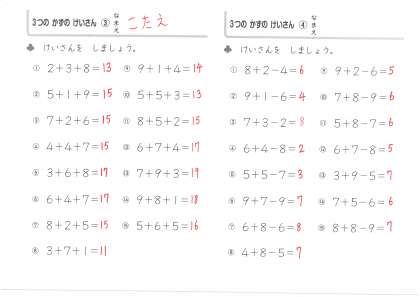 3つの かずの けいさん ③ なまえ こたえ
♣ けいさんを しましょう。
① 2+3+8=13
② 5+1+9=15
③ 7+2+6=15
④ 4+4+7=15
⑤ 3+6+8=17
⑥ 6+4+7=17
⑦ 8+2+5=15
⑧ 3+7+1=11
⑨ 9+1+4=14
⑩ 5+5+3=13
⑪ 8+5+2=15
⑫ 6+7+4=17
⑬ 7+9+3=19
⑭ 9+8+1=18
⑮ 5+6+5=16
3つの かずの けいさん ④ なまえ
♣ けいさんを しましょう。
① 8+2-4=6
② 9+1-6=4
③ 7+3-2=8
④ 6+4-8=2
⑤ 5+5-7=3
⑥ 9+7-9=7
⑦ 6+8-6=8
⑧ 4+8-5=7
⑨ 9+2-6=5
⑩ 7+8-9=6
⑪ 5+8-7=6
⑫ 6+7-8=5
⑬ 3+9-5=7
⑭ 7+5-6=6
⑮ 8+8-9=7